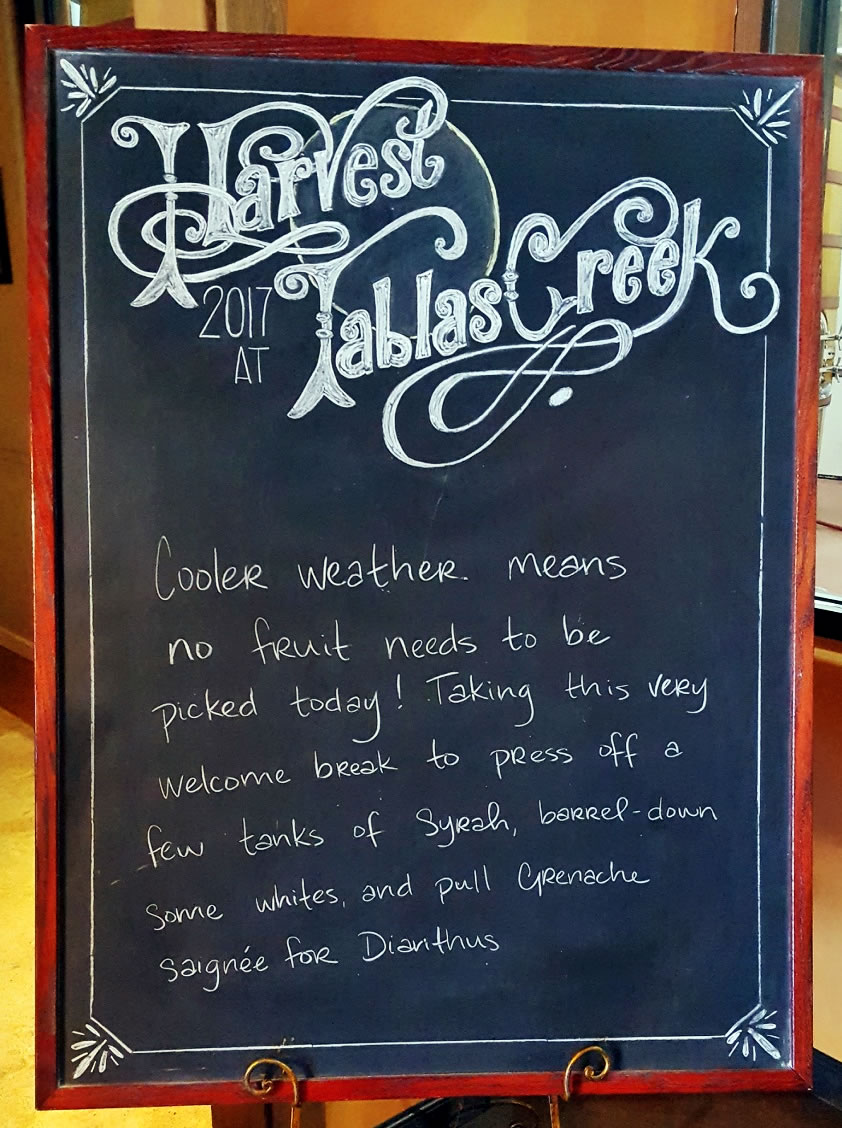 Harvest
2017
AT
Tablas Creek
Cooler weather. means
no fruit needs to be
picked today! Taking this very
welcome break to press off a
few tanks of Syrah, barrel-down
some whites, and pull Grenache
saignée for Dianthus